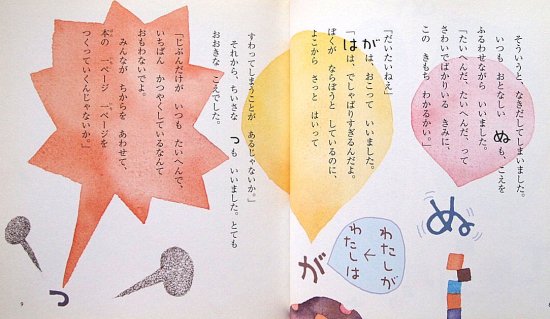 そういうと、なきだしてしまいました。
いつも おとなしい ぬも、こえを
ふるわせながら いいました。
「たいへんだ、たいへんだ、って
さわいでばかりいる きみに、
この きもち わかるかい。」
ぬ
「だいたいねえ」
がは、おこって いいました。
「はは、でしゃばりすぎるんだよ。
ぼくが ならぼうと しているのに、
よこから さっと はいって
わたしが
↓
わたしは
が
8
すわってしまうことが あるじゃないか。」
それから、ちいさな っも いいました。とても
おおきな こえでした。
「じぶんだけが いつも たいへんで、
いちばん かつやくしているなんて
おもわないでよ。
みんなが ちからを あわせて、
本の 一ページ 一ページを
つくっていくんじゃないか。」
っ
9